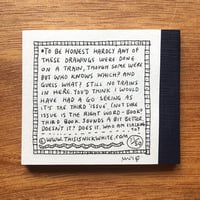 *TO BE HONEST HARDLY ANY OF
THESE DRAWINGS WERE DONE
ON A TRAIN, THOUGH SOME WERE
BUT WHO KNOWS WHICH? AND
GUESS WHAT? STILL NO TRAINS
IN HERE. YOU'D THINK I WOULD
HAVE HAD A GO SEEING AS
IT'S THE THIRD 'ISSUE' (NOT SURE
ISSUE IS THE RIGHT WORD - BOOK?
THIRD BOOK. SOUNDS A BIT BETTER,
DOESN'T IT? DOES IT. WHO AM I
© WWW.THISISNICKWHITE.COM